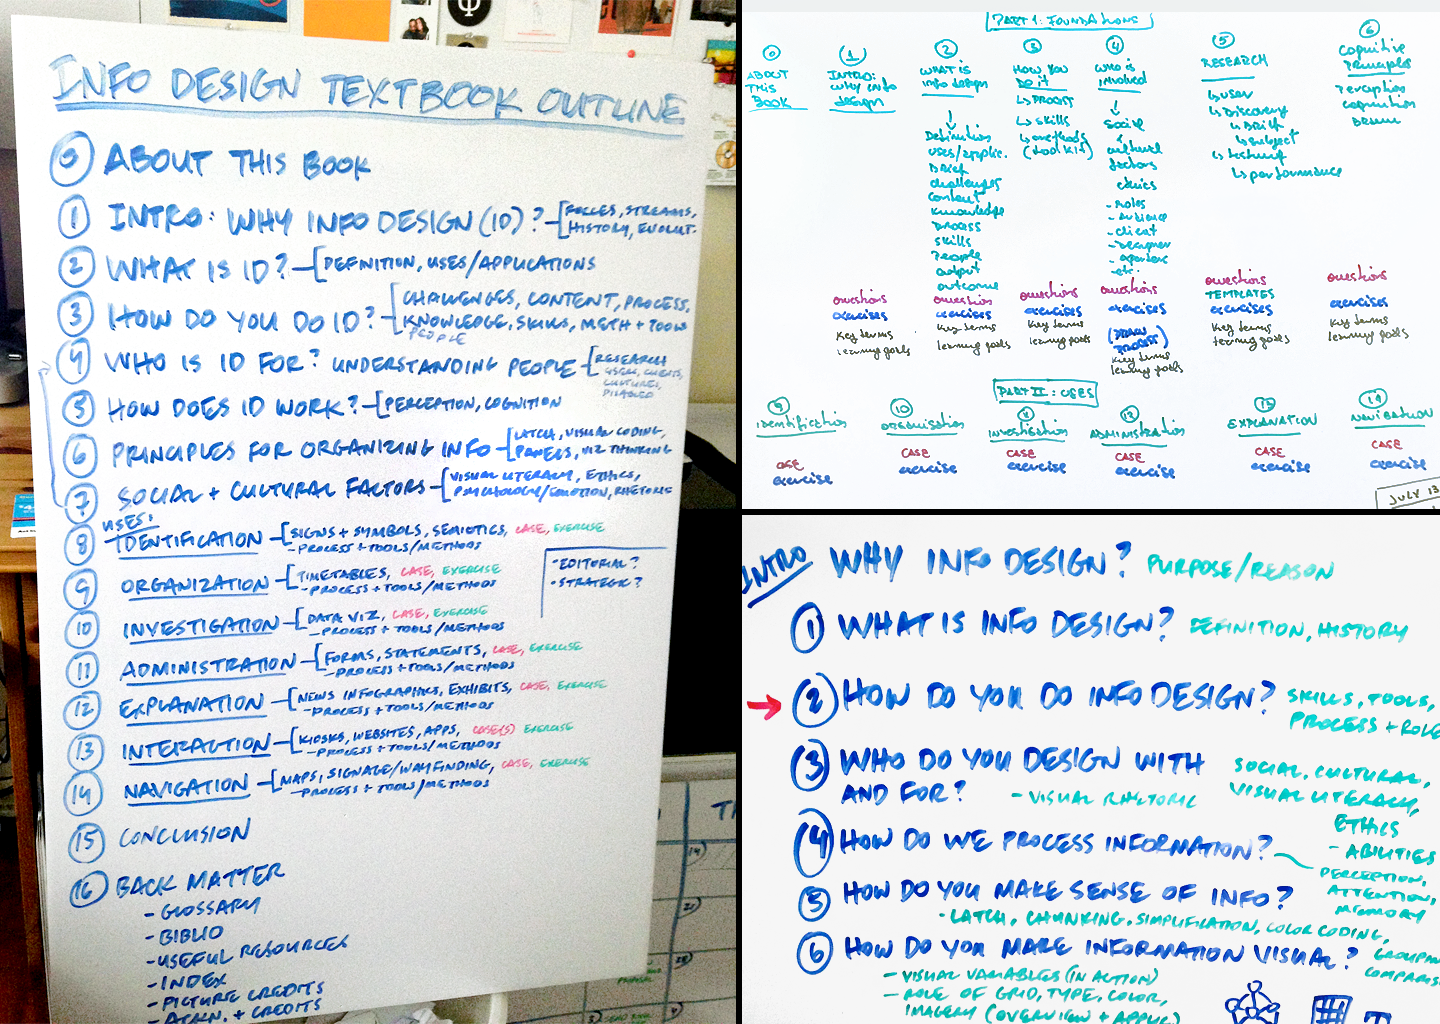 INFO DESIGN TEXTBOOK OUTLINE
0 ABOUT THIS BOOK
1 INTRO: WHY INFO DESIGN (ID)? [FORCES, STREAMS,
HISTORY, EVOLUT.
2 WHAT IS ID? [DEFINITION, USES/APPLICATIONS
3 HOW DO YOU DO ID? [CHALLENGES, CONTENT, PROCESS,
KNOWLEDGE, SKILLS, METH + TOOLS
PEOPLE
4 WHO IS ID FOR? UNDERSTANDING PEOPLE [RESEARCH
USERS, CLIENTS,
CULTURES,
DISABLED
5 HOW DOES ID WORK? [PERCEPTION, COGNITION
6 PRINCIPLES FOR ORGANIZING INFO [LATCH, VISUAL CODING,
PANELS, VIZ THINKING
7 SOCIAL + CULTURAL FACTORS [VISUAL LITERACY, ETHICS,
PSYCHOLOGY/EMOTION, RHETORIC
USES:
8 IDENTIFICATION [SIGNS + SYMBOLS, SEMIOTICS, CASE, EXERCISE
- PROCESS + TOOLS/METHODS
9 ORGANIZATION [TIMETABLES, CASE, EXERCISE
- PROCESS + TOOLS/METHODS
- EDITORIAL?
- STRATEGIC?
10 INVESTIGATION [DATA VIZ, CASE, EXERCISE
- PROCESS + TOOLS/METHODS
11 ADMINISTRATION [FORMS, STATEMENTS, CASE, EXERCISE
- PROCESS + TOOLS/METHODS
12 EXPLANATION [NEWS INFOGRAPHICS, EXHIBITS, CASE, EXERCISE
- PROCESS + TOOLS/METHODS
13 INTERACTION [KIOSKS, WEBSITES, APPS, CASE(S) EXERCISE
- PROCESS + TOOLS/METHODS
14 NAVIGATION [MAPS, SIGNAGE/WAYFINDING, CASE, EXERCISE
- PROCESS + TOOLS/METHODS
15 CONCLUSION
16 BACK MATTER
- GLOSSARY
- BIBLIO
- USEFUL RESOURCES
- INDEX
- PICTURE CREDITS
- ACKN. + CREDITS
PART 1: FOUNDATIONS
0
ABOUT
THIS
BOOK
1
INTRO:
WHY INFO
DESIGN
questions
exercises
Key terms
learning goals
2
WHAT IS
info design
Definition
uses/applic.
Brief
challenges
content
knowledge
process
skills
people
output
outcome
questions
exercises
Key terms
learning goals
3
HOW YOU
DO IT
process
skills
methods
(toolkit)
questions
exercises
Key terms
learning goals
4
WHO IS
involved
social
cultural
factors
ethics
- roles
- audience
- client
- designer
- etc.
questions
exercises
Key terms
learning goals
5
RESEARCH
user
Discovery
Brief
subject
testing
performance
questions
TEMPLATES
exercises
Key terms
learning goals
6
Cognitive
Principles
perception
cognition
questions
exercises
Key terms
learning goals
PART II: USES
9
identification
CASE
exercise
10
organisation
CASE
exercise
11
INVESTIGATION
CASE
exercise
13
ADMINISTRATION
CASE
exercise
12
EXPLANATION
CASE
exercise
14
NAVIGATION
CASE
exercise
JULY 13
INTRO WHY INFO DESIGN? PURPOSE/REASON
1 WHAT IS INFO DESIGN? DEFINITION, HISTORY
2 HOW DO YOU DO INFO DESIGN? SKILLS, TOOLS,
PROCESS + ROLE
3 WHO DO YOU DESIGN WITH
AND FOR? - VISUAL RHETORIC
SOCIAL, CULTURAL,
VISUAL LITERACY,
ETHICS
- ABILITIES
4 HOW DO WE PROCESS INFORMATION?
PERCEPTION,
ATTENTION,
MEMORY
5 HOW DO YOU MAKE SENSE OF INFO?
- LATCH, CHUNKING, SIMPLIFICATION, COLOR CODING,
GROUPIN
COMPARIS
6 HOW DO YOU MAKE INFORMATION VISUAL?
- VISUAL VARIABLES (IN ACTION)
- ROLE OF GRID, TYPE, COLOR,
IMAGERY (OVERVIEW + APPLIC)